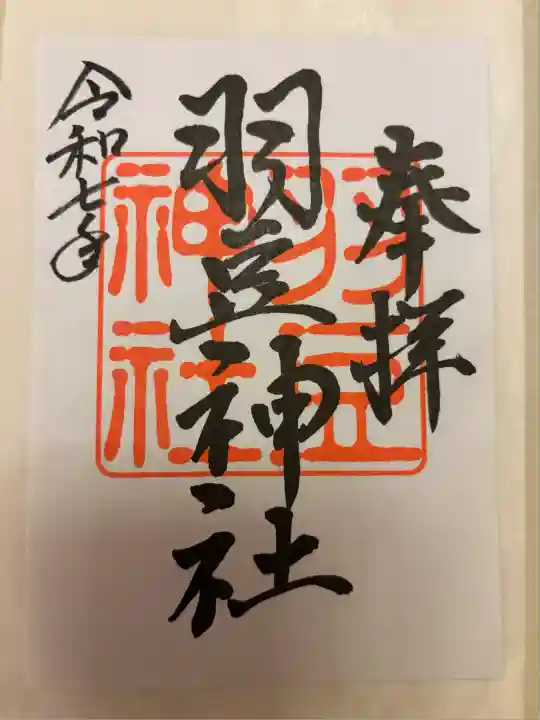 奉拝
羽豆神社
羽豆
神社
令和七年